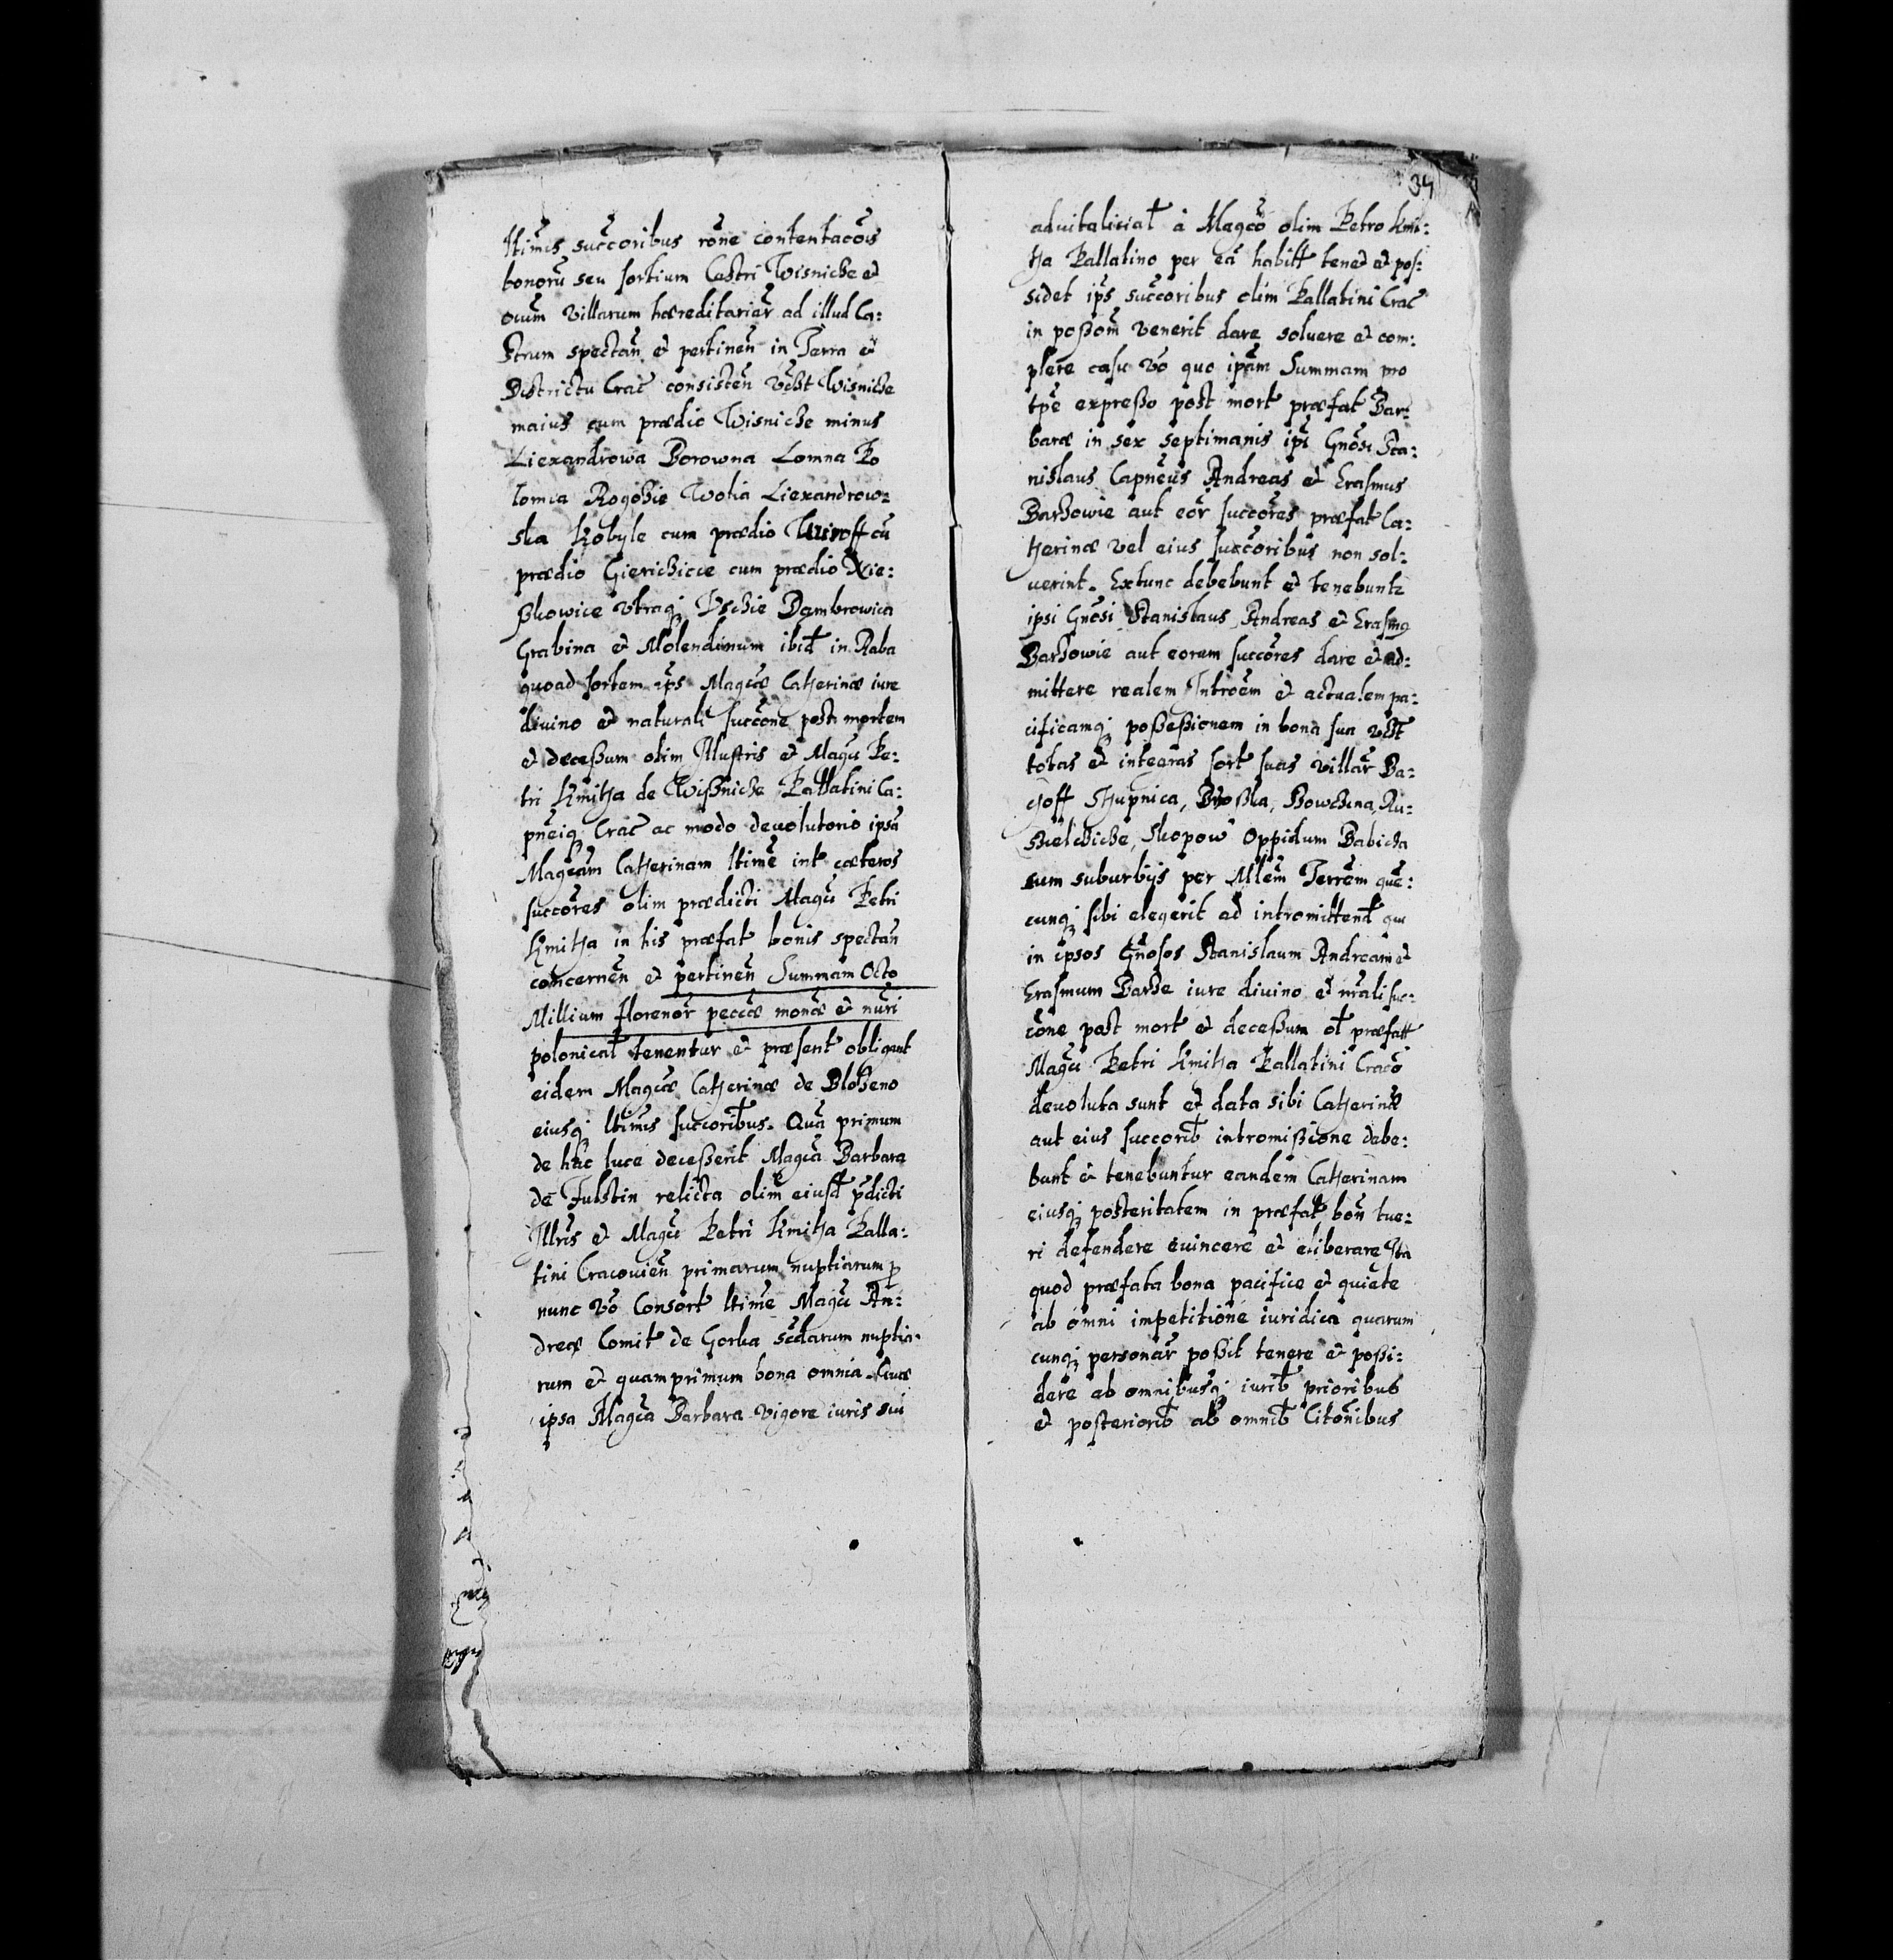 ltimis succoribus rone contentacois
bonoru seu sortium Castri Wisnicze et
oium villarum hæreditariar ad illud Ca:
strum spectan et pertinen in Terra et
Districtu Crac consisten vdzt Wisnicze
maius cum prædio Wisnicze minus
Liexandrowa Borowna Lomna Po
lomia Rogozie Wolia Liexandrow:
ska Kobyle cum prædio Wiroff cu
prædio Gierichicie cum prædio Xie:
ßkowice vtraq Uscie Dambrowica
Grabina et Molendinum ibid in Raba
quoad sortem ips Magcæ Catherinæ iure
diuino et naturali succone post mortem
et deceßum olim Illustris et Magci Pe:
tri Kmitha de Wißnicze Pallatini Ca:
pneiq Crac ac modo deuolutorio ipsa
Magcam Catherinam ltime int cæteros
succores olim prædicti Magci Petri
Kmitha in his præfat bonis spectan
concernen et pertinen Summam Octo
Millium florenor peccæ monæ et nuri
polonical tenentur et præsent obligant
eidem Magcæ Catherinæ de Blozeno
eiusq ltimis succoribus. Qua primum
de hac luce deceßerit Magca Barbara
de Fulstin relicta olim eiusd pdicti
Illris et Magci Petri Kmitha Palla:
tini Cracouien primarum nuptiarum p
nunc vo Consort ltime Magci An:
dreæ Comit de Gorka scdarum nuptia:
rum et quamprimum bona omnia. Quæ
ipsa Magca Barbara vigore iuris sui
39
aduitalicial à Magco olim Petro Kmi:
tha Pallatino per ea habitt tenet et pos:
sidet ips succoribus olim Pallatini Crac
in poßom venerit dare soluere et com:
plere casu vo quo ipam Summam mo
tpe expreßo post mort præfat Bar:
baræ in sex septimanis ipi Gnosi Sta:
nislaus Capneus Andreas et Erasmus
Barzowie aut eor succores præfat Ca:
therinæ vel eius succoribus non sol:
uerint. Extunc debebunt et tenebunt
ipsi Gnosi Stanislaus Andreas et Erasmq
Barzowie aut eorum succores dare et ad:
mittere realem Introem et actualem pa:
cificamq poßeßionem in bona sua vdzt
totas et integras sort suas villar Ba:
choff Skupnica, Brzoßka, Bowchna, Ru:
szielcziche, Skopow Oppidum Babicza
cum suburbijs per Mllem Terrem que:
cunq sibi elegerit ad intromittend quæ
in ipsos Gnosos Stanislaum Andream et
Erasmum Barze iure diuino et nrali suc:
cone post mort et deceßum ol præfatt
Magci Petri Kmitha Pallatini Craco
deuoluta sunt et data sibi Catherinæ
aut eius succorib intromißione debe:
bunt et tenebuntur eandem Catherinam
eiusq posteritatem in præfat bon tue:
ri defendere euincere et eliberare Ita
quod præfata bona pacifice et quiete
ab omni impetitione iuridica quarum
cunq personar poßit tenere et poßi:
dere ab omnibusq iurib prioribus
et posteriorib ab omnib litonibus